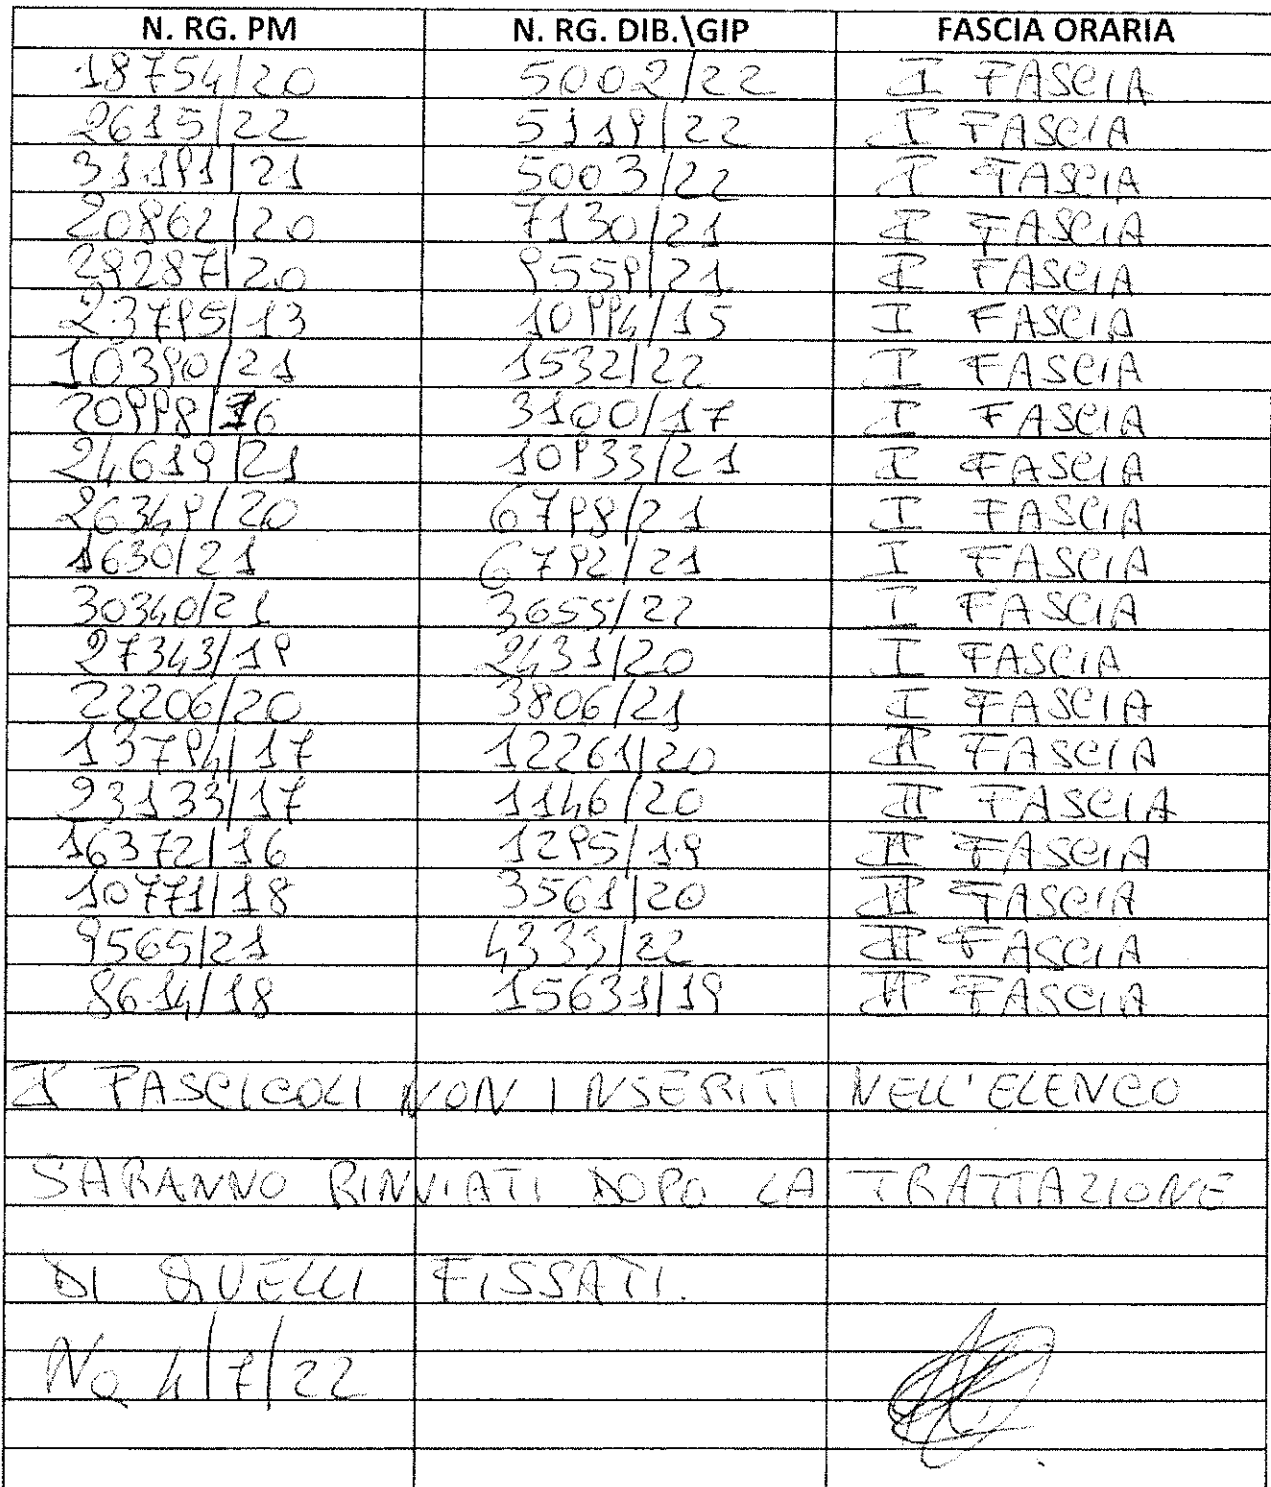 N. RG. PM N. RG. DIB.\GIP FASCIA ORARIA
18754/20 5002/22 I FASCIA
2615/22 5119/22 I FASCIA
31191/21 5003/22 I FASCIA
20862/20 7130/21 I FASCIA
29287/20 9559/21 I FASCIA
23795/13 10994/15 I FASCIA
10390/21 1532/22 I FASCIA
20998/16 3100/17 I FASCIA
24619/21 10933/21 I FASCIA
26349/20 6798/21 I FASCIA
1630/21 6792/21 I FASCIA
30340/21 3655/22 I FASCIA
27343/19 2431/20 I FASCIA
22206/20 3806/21 I FASCIA
13794/17 12261/20 II FASCIA
23133/17 1146/20 II FASCIA
16372/16 1295/19 II FASCIA
10771/18 3561/20 II FASCIA
9565/21 4333/22 II FASCIA
8614/18 15631/19 II FASCIA
I FASCICOLI NON INSERITI NELL'ELENCO
SARANNO RINVIATI DOPO LA TRATTAZIONE
DI QUELLI FISSATI.
Na 4/7/22